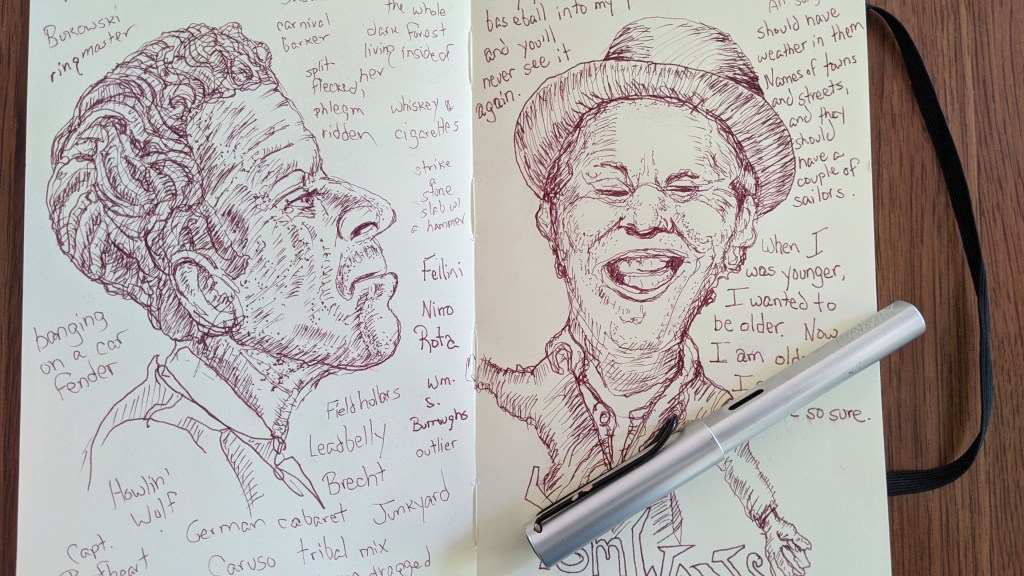 Burowski
ringmaster
carnival
barker
the whole
dark forest
living inside of
her
split
flecked,
phlegm
ridden
whiskey &
cigarettes
strike
a
slab w/
a hammer
Fellini
Nino
Rota
banging
on a car
fender
Wm.
S.
Burrwughs
outlier
Field hollars
Leadbelly
Brecht
Howlin'
Wolf
German cabaret
Junkyard
Capt.
Caruso
tribal mix
dragged
baseball into my
and you'll
never see it
again.
should have
weather in them
Names of towns
and streets,
and they
should
have a
couple of
sailors.
When I
was younger,
I wanted to
be older. Now
I am old
I
so sure.